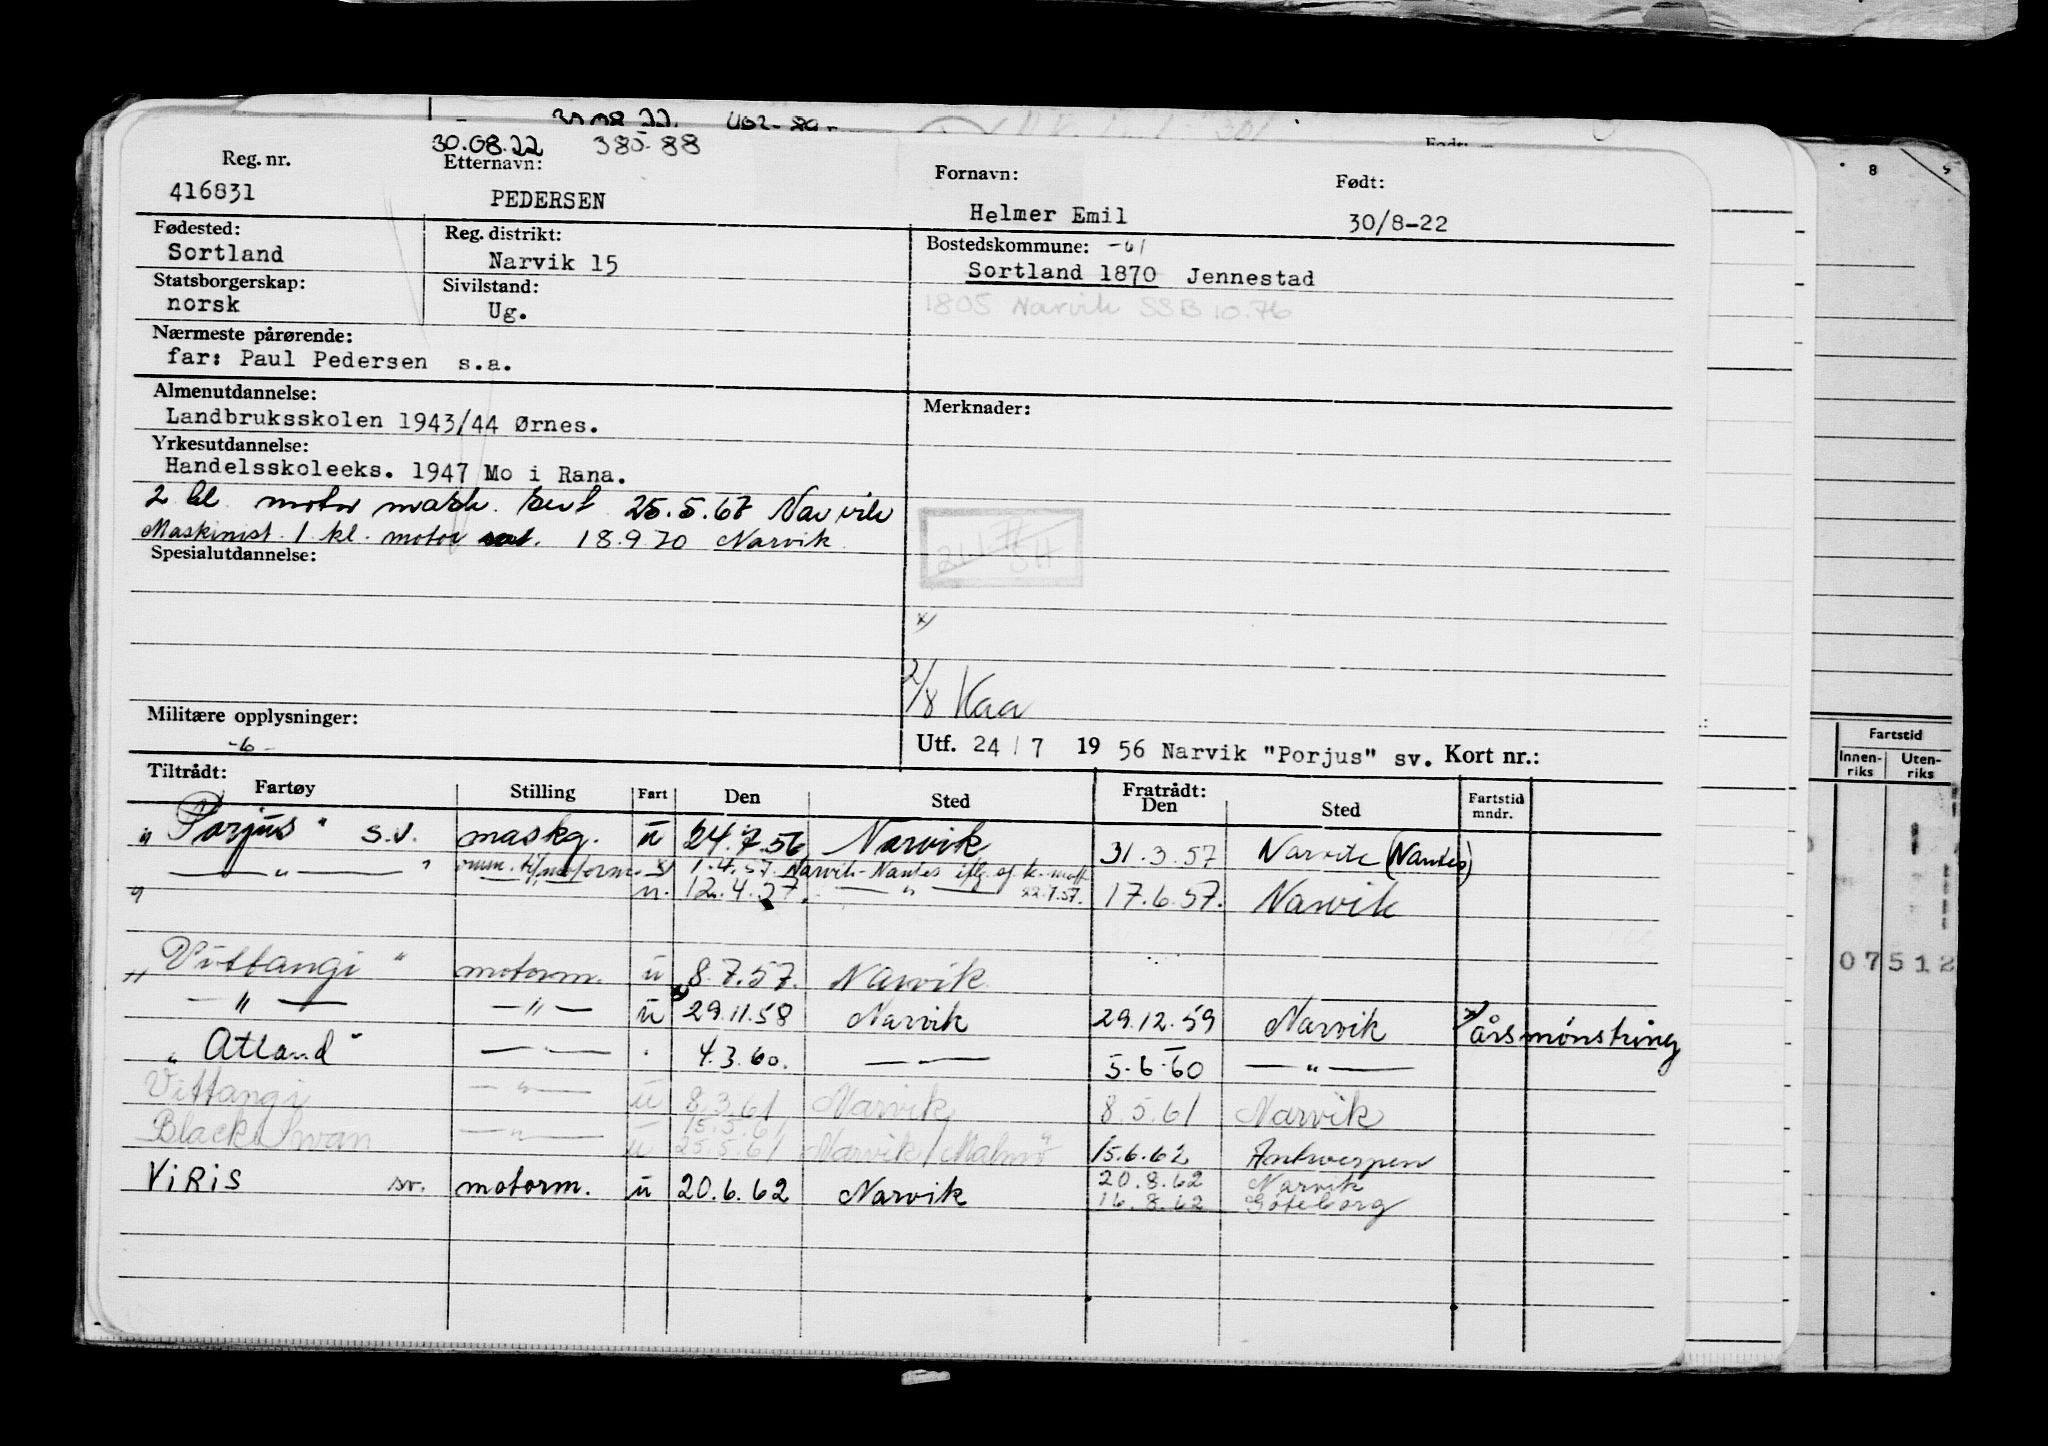 30.08.22 380-88
Reg. nr. Etternavn: Fornavn: Født:
416831 PEDERSEN Helmer Emil 30/8-22
Fødested: Reg. distrikt: Bostedskommune: -61
Sortland Narvik 15 Sortland 1870 Jennestad
Statsborgerskap: Sivilstand:
norsk Ug. 1805 Narvik SSB 10.76
Nærmeste pårørende:
far: Paul Pedersen s.a.
Almenutdannelse: Merknader:
Landbruksskolen 1943/44 Ørnes.
Yrkesutdannelse:
Handelsskoleeks. 1947 Mo i Rana.
2 kl. motor mask. sert 25.5.67 Narvik
Maskinist 1 kl. motor 18.9.70 Narvik
Spesialutdannelse:
x)
2/8 Kaa
Militære opplysninger:
-6-
Utf. 24/7 1956 Narvik "Porjus" sv. Kort nr.:
Tiltrådt: Fratrådt:
Fartøy Stilling Fart Den Sted Den Sted Fartstid mndr.
"Porjus" s.v. maskg. u 24.7.56 Narvik 31.3.57 Narvik (Nantes)
— " — " omm. til motorm. x) 1.4.57. Narvik-Nantes
" u. 12.4.57. — " — 22.7.57. 17.6.57. Narvik
"Vittangi" motorm. u 8.7.57. Narvik
— " — — " — u x) 29.11.58 Narvik 29.12.59 Narvik x) årsmønstring
"Atland" — " — " 4.3.60. — " — 5.6.60 — " —
Vittangi — " — u 8.3.61 Narvik 8.5.61 Narvik
15.5.61
Black Swan — " — u 25.5.61 Narvik/Malmö 15.6.62 Antwerpen
20.8.62 Narvik
ViRiS sv. motorm. u 20.6.62 Narvik 16.8.62 Göteborg
8
Fartstid
Innenriks Utenriks
07512